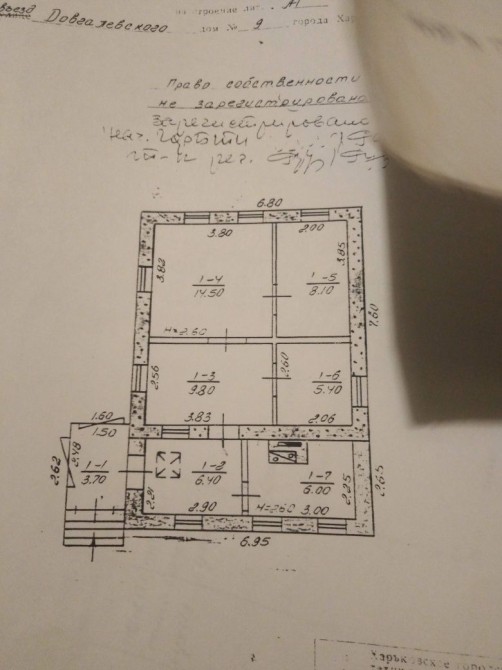 въезд Довгалевского
на строение лит. А1
дом № 9 города Хар
Право собственности
не зарегистрировано
Зарегистрировано
6.80
3.80
2.00
3.82
3.85
1-4
14.50
1-5
8.10
7.60
H=2.60
2.56
1-3
9.80
2.60
1-6
5.40
3.83
2.06
1.60
1.50
2.62
2.48
1-1
3.70
1-2
6.40
1-7
6.00
2.21
2.25
2.65
2.90
H=260
3.00
6.95
Харьковское городс